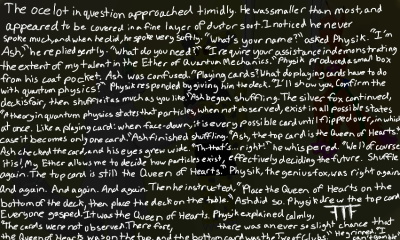 The ocelot in question approached timidly. He was smaller than most, and
appeared to be covered in a fine layer of dust or soot. I noticed he never
spoke much, and when he did, he spoke very softly. "What's your name?" asked Physik. "I'm
Ash," he replied gently. "What do you need?" "I require your assistance in demonstrating
the extent of my talent in the Ether of Quantum Mechanics." Physik produced a small box
from his coat pocket. Ash was confused. "Playing cards? What do playing cards have to do
with quantum physics?" Physik responded by giving him the deck. "I'll show you. Confirm the
deck is fair, then shuffle it as much as you like." Ash began shuffling. The silver fox continued,
"A theory in quantum physics states that particles, when not observed, exist in all possible states
at once. Like a playing card: when face-down, it is every possible card until flipped over, in which
case it becomes only one card." Ash finished shuffling. "Ash, the top card is the Queen of Hearts."
Ash checked the card, and his eyes grew wide. "Th-that's... right!" he whispered. "Well of course
it is! My Ether allows me to decide how particles exist, effectively deciding the future. Shuffle
again. The top card is still the Queen of Hearts." Physik, the genius fox, was right again.
And again. And again. And again. Then he instructed, "Place the Queen of Hearts on the
bottom of the deck, then place the deck on the table." Ash did so. Physik drew the top card.
Everyone gasped. It was the Queen of Hearts. Physik explained calmly,
"The cards were not observed. Therefore, there was an ever so slight chance that
the Queen of Hearts was on the top, and the bottom card was the Two of Clubs." He grinned. "I